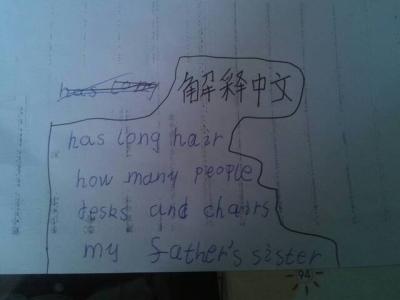 has long
解释中文
has long hair
how many people
desks and chairs
my father's sister
94